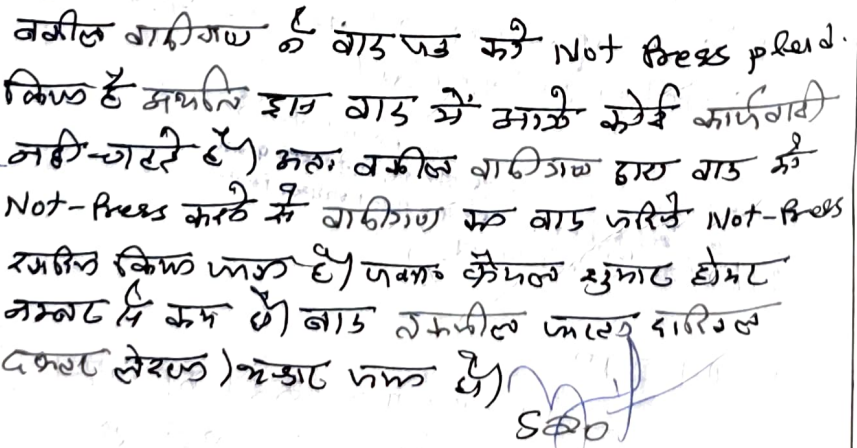 वकील वादीगण ने वाद पत्र को Not Press plead.
किया है अर्थात इस वाद में आगे कोई कार्यवाही
नही चाहते है। अतः वकील वादीगण द्वारा वाद को
Not-Press करने से वादीगण का वाद जरिये Not-Press
खारिज किया जाता है। फैसल शुमार होकर
नम्बर से कम हो। बाद तकमील दाखिल
दफ्तर लेखा भण्डार हो।
SDO